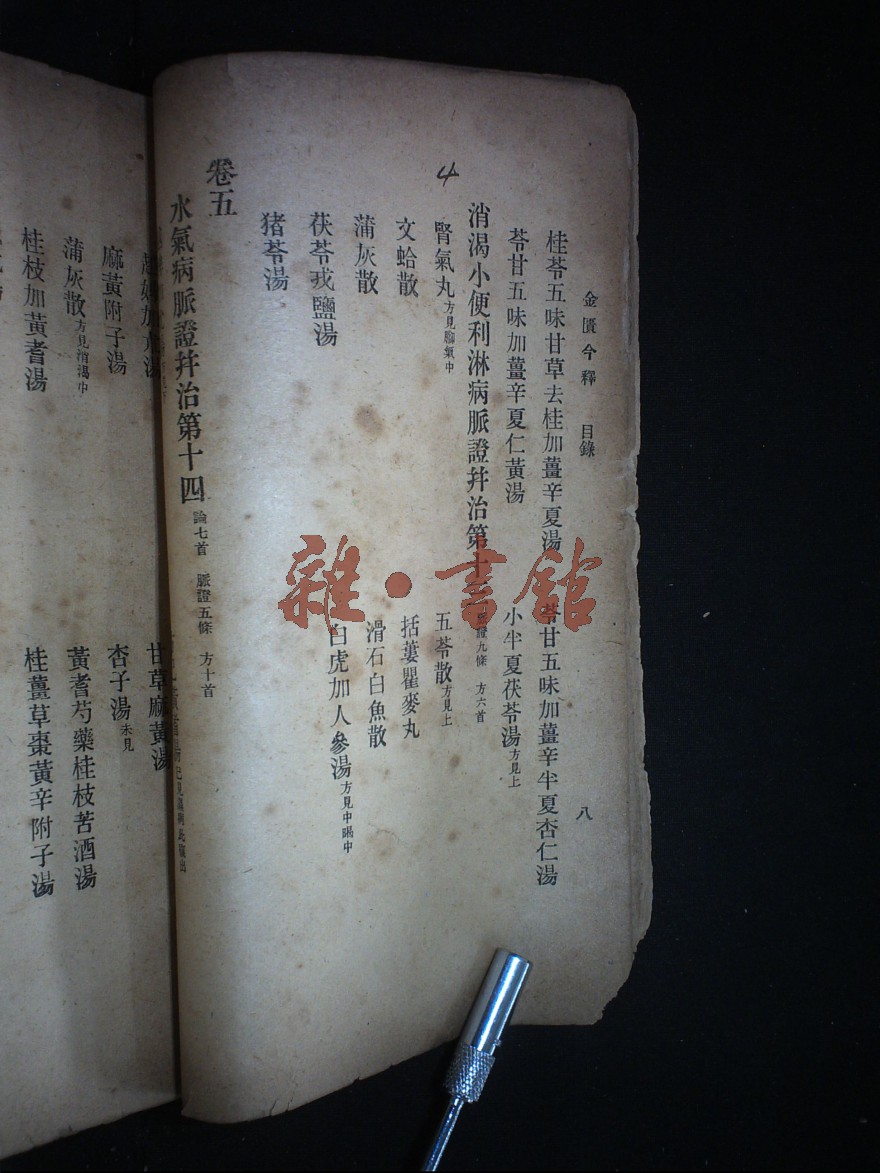 金匱今釋　目錄　八
桂苓五味甘草去桂加薑辛夏湯　苓甘五味加薑辛半夏杏仁湯
苓甘五味加薑辛夏仁黃湯　小半夏茯苓湯方見上
消渴小便利淋病脈證幷治第十　證九條　方六首
腎氣丸方見腳氣中　五苓散方見上
4
文蛤散　括蔞瞿麥丸
蒲灰散　滑石白魚散
茯苓戎鹽湯　白虎加人參湯方見中暍中
猪苓湯
卷五
水氣病脈證幷治第十四論七首　脈證五條　方十首
甘草麻黃湯
麻黃附子湯　杏子湯未見
蒲灰散方見消渴中　黃耆芍藥桂枝苦酒湯
桂枝加黃耆湯　桂薑草棗黃辛附子湯
雜·書館